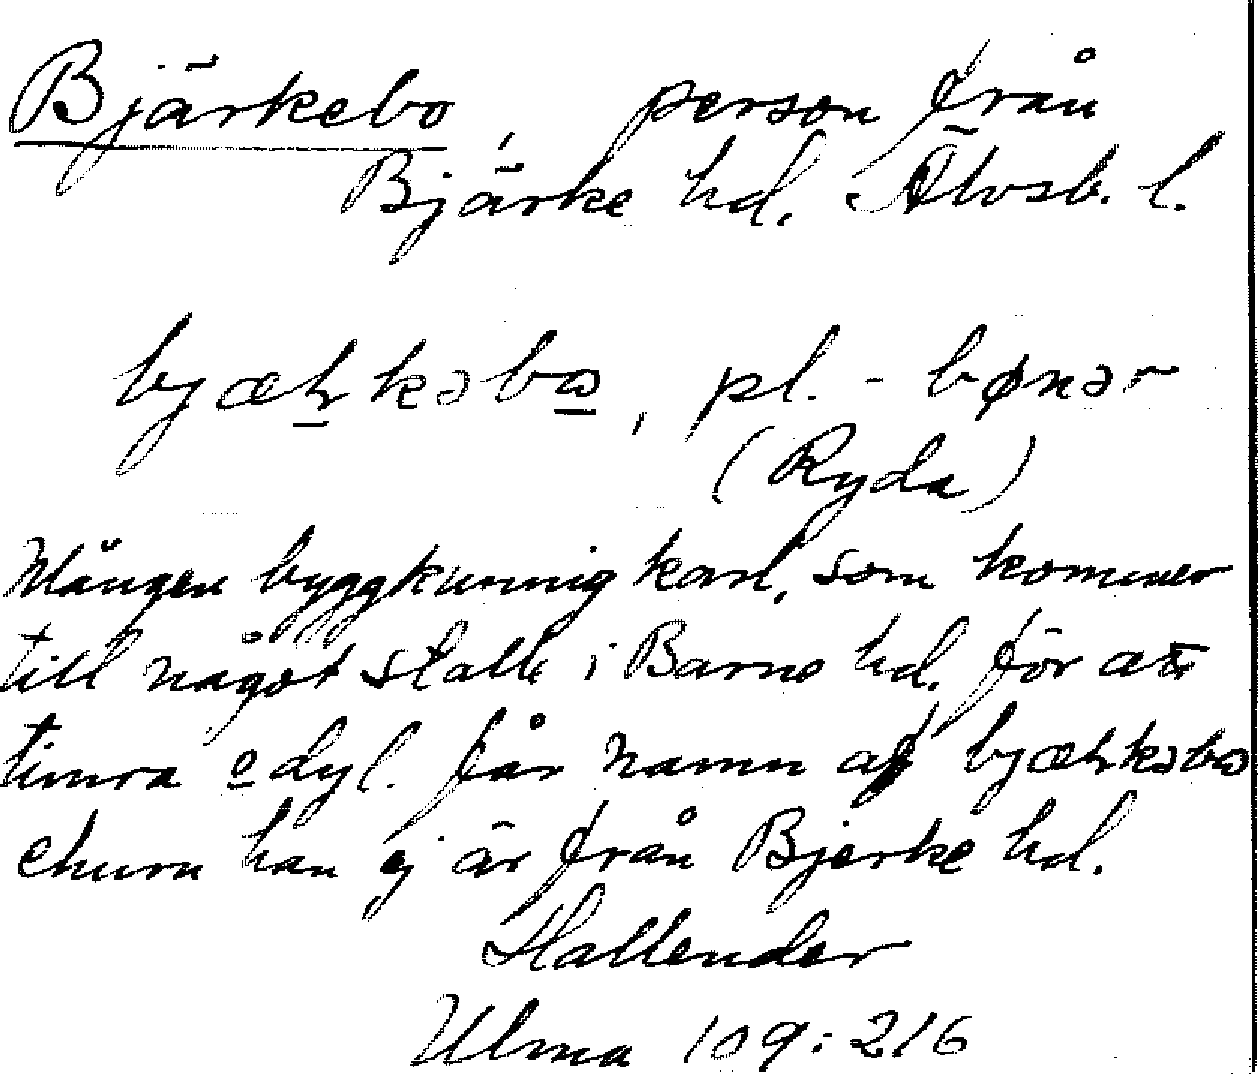 Bjärkebo, person från
Bjärke hd. Älvsb. l.
bjæꞕkəbɷ, pl. -bønər
(Ryda)
Mången byggkunnig karl, som kommer
till något ställe i Barne hd. för att
timra o dyl. får namn af bjæꞕkəbɷ
ehuru han ej är från Bjerke hd.
Hallender
Ulma 109:216